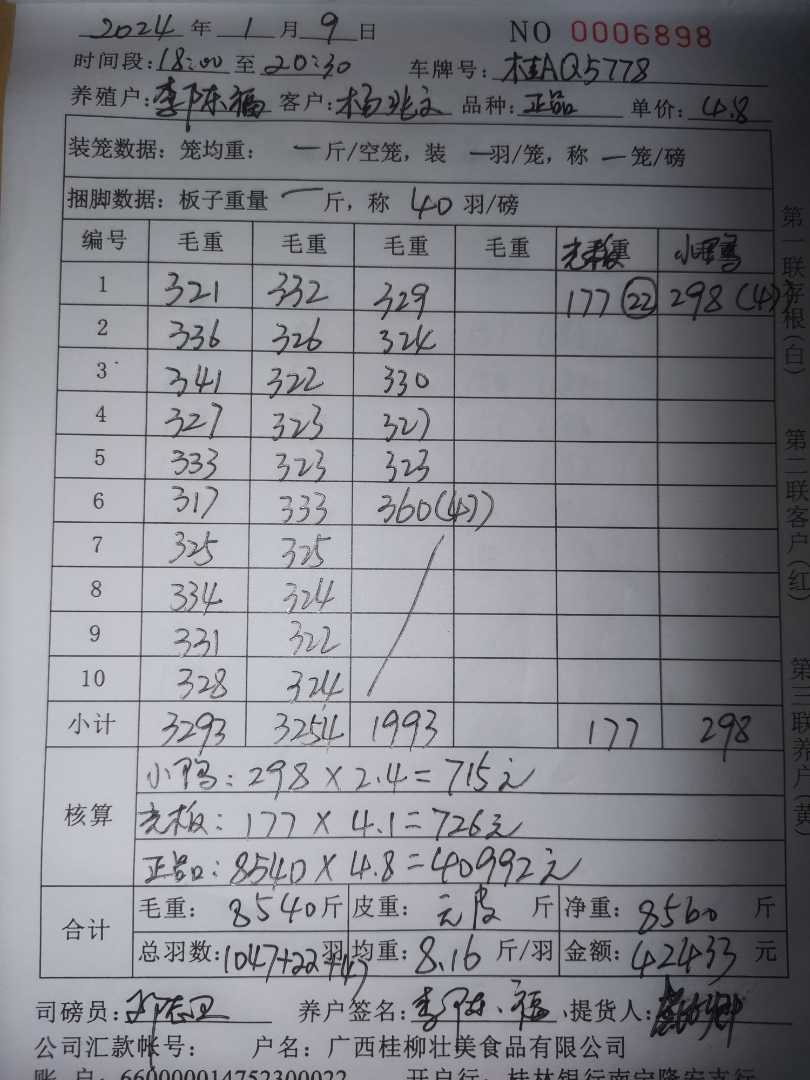 2024 年 1 月 9 日 NO 0006898
时间段:18:00 至 20:30 车牌号:桂AQ5778
养殖户:李陈福 客户:杨兆文 品种:正品 单价:4.8
装笼数据:笼均重: 一斤/空笼,装 一羽/笼,称 一笼/磅
捆脚数据:板子重量 一斤,称 40 羽/磅
编号 毛重 毛重 毛重 毛重 光板 小鸭
1 321 332 329 177 (22) 298 (47)
2 336 326 324
3 341 322 330
4 327 323 327
5 333 323 323
6 317 333 360(47)
7 325 325
8 334 324
9 331 322
10 328 324
小计 3293 3254 1993 177 298
核算
小鸭:298×2.4=715元
光板:177×4.1=726元
正品:8540×4.8=40992元
合计
毛重:8540斤 皮重:元皮 斤 净重:8560 斤
总羽数:1047+22+47羽 均重:8.16 斤/羽 金额:42433 元
司磅员: 养户签名:李陈福 提货人:
公司汇款帐号: 户名:广西桂柳壮美食品有限公司
账 户:660000014752300022 开户行:桂林银行南宁隆安支行
第一联存根(白) 第二联客户(红) 第三联养户(黄)